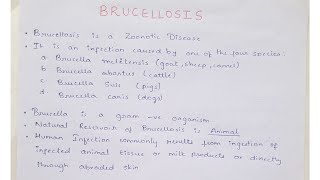 BRUCELLOSIS
• Brucellosis is a Zoonotic Disease
• It is an infection caused by one of the four species:
a Brucella melitensis (goat, sheep, camel)
b Brucella abortus (cattle)
c Brucella Suis (pigs)
d. Brucella canis (dogs)
• Brucella is a gram -ve organism
• Natural Reservoir of Brucellosis is Animal
• Human Infection commonly results from ingestion of
infected animal tissue or milk products or directly
through abraded skin